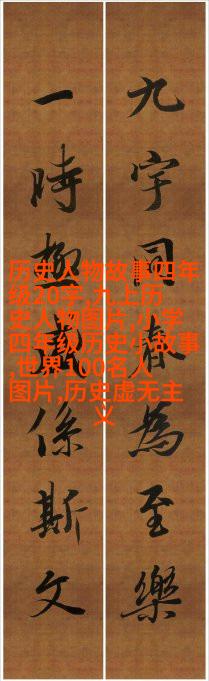 九宇同春為至樂
一時極盛係斯文
历史人物故事四年
级20字,九上历
史人物图片,小学
四年级历史小故事
,世界100名人
图片,历史虚无主
义